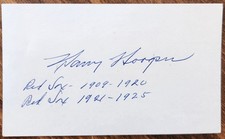 Harry Hooper
Red Sox - 1909-1920
Red Sox 1921-1925